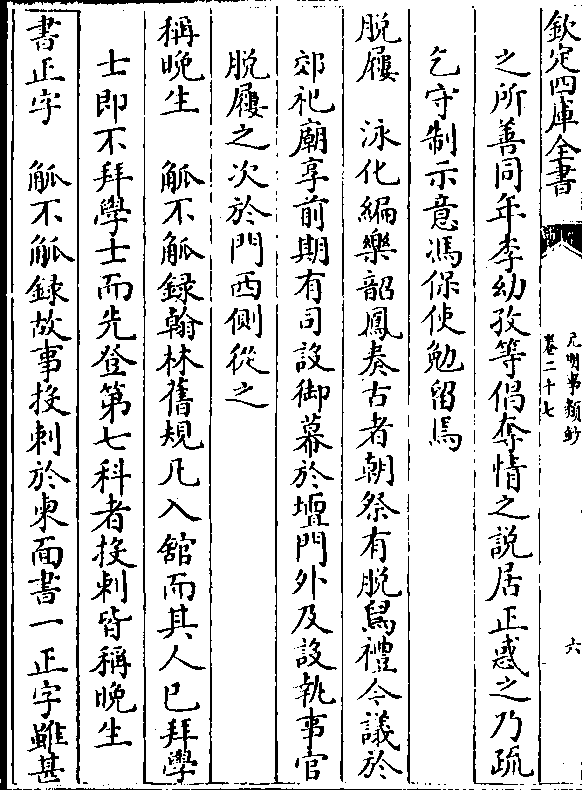 欽定四庫全書
元明事類鈔
卷二十七
六
之所善同年李幼孜等倡奪情之說居正惑之乃疏
乞守制示意馮保使勉留焉
脱屨　泳化編樂韶鳳奏古者朝祭有脱舄禮令議於
郊祀廟享前期有司設御幕於壇門外及設執事官
脱屨之次於門西側從之
稱晚生　觚不觚録翰林舊規凡入舘而其人已拜學
士即不拜學士而先登第七科者投刺皆稱晚生
書正字　觚不觚録故事投刺於東面書一正字雖甚